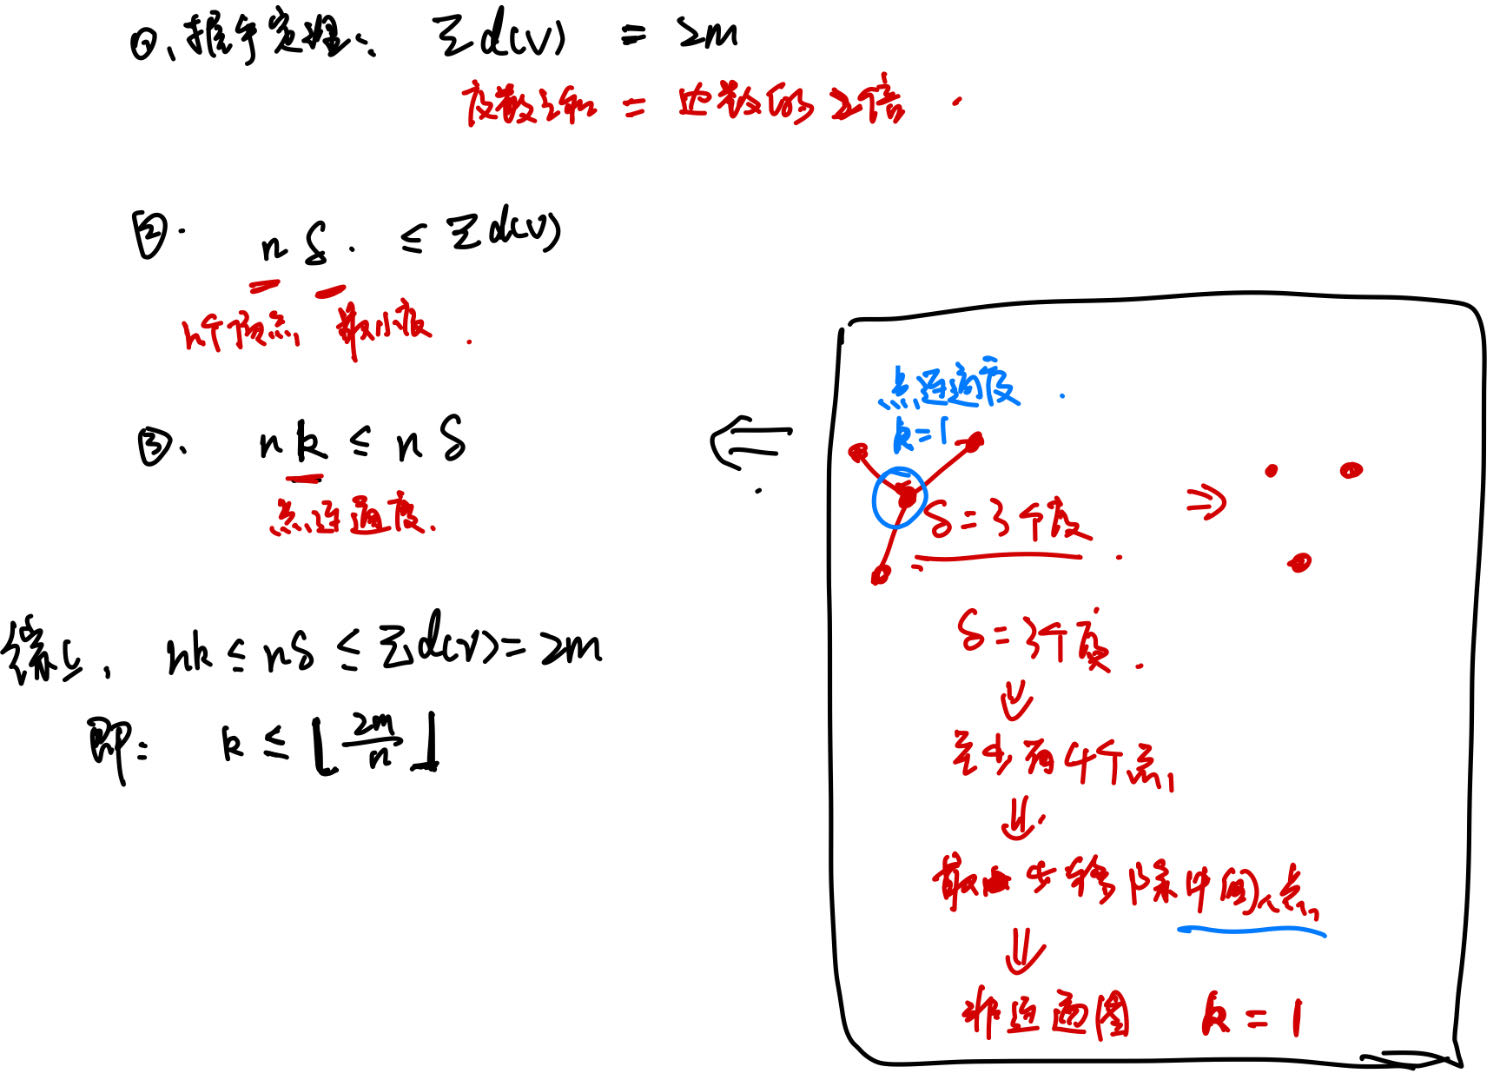 ①、握手定理： Σd(v) = 2m
度数之和 = 边数的2倍 .
②. nδ. ≤ Σd(v)
n个顶点 最小度 .
③. nk ≤ nδ
点连通度.
综上, nk ≤ nδ ≤ Σd(v) = 2m
即: k ≤ ⌊2m/n⌋
点连通度 .
k=1
δ=3个度 .
δ=3个度 .
至少有4个点
最少移除中间点
非连通图 k=1